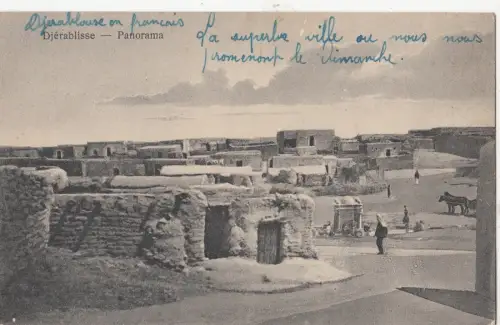 Djérablouse en français
Djérablisse — Panorama
La superbe ville ou nous nous
promenont le dimanche.